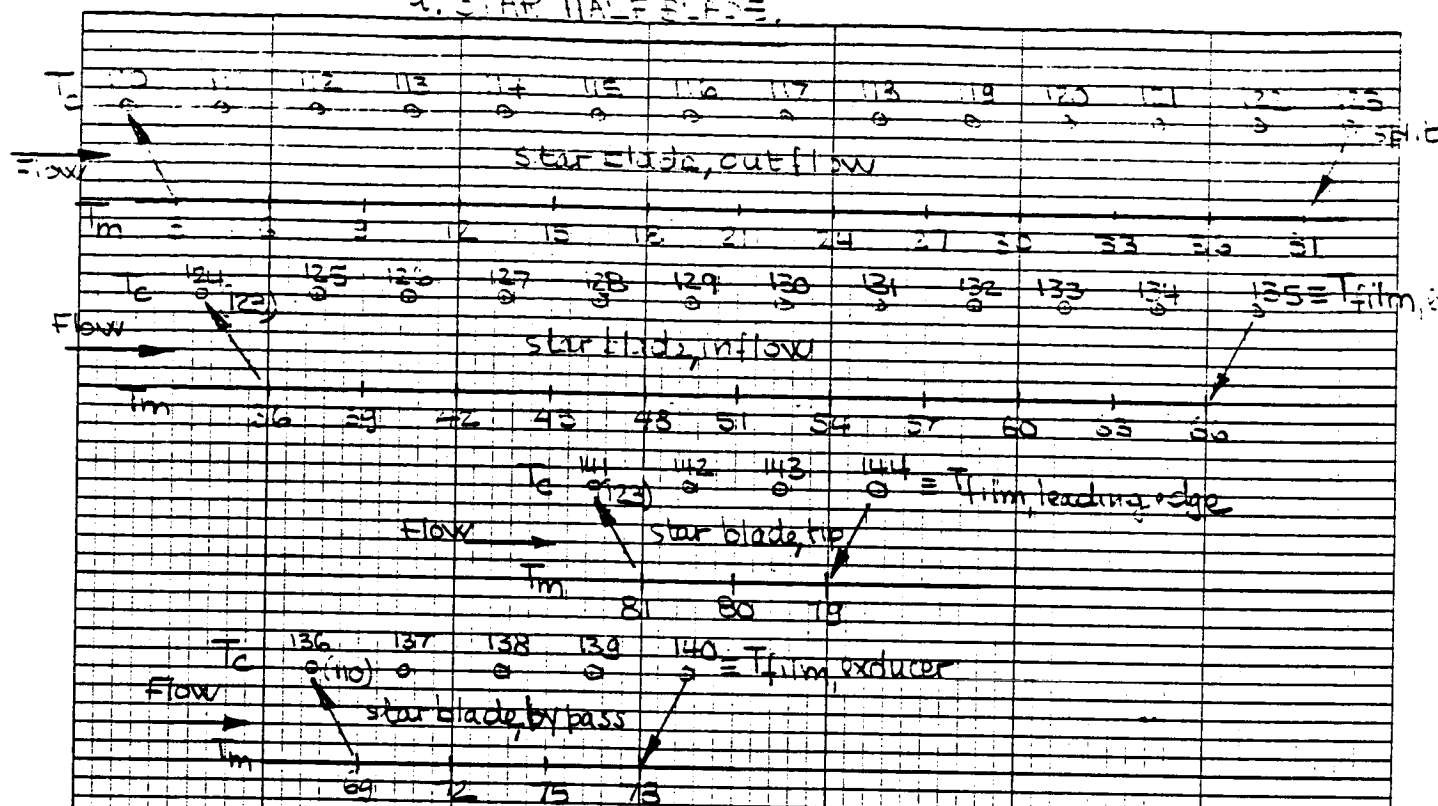 STAR HALF BLADE.
Tc 112 113 114 115 116 117 118 119 120 121
split
star blade, outflow
Flow
Tm 12 15 18 21 24 27 30 33
Tc 124 (123) 125 126 127 128 129 130 131 132 133 134 135 ≡ Tfilm,
Flow
star blade, inflow
Tm 36 39 42 45 48 51 54 57 60 63 66
Tc 141 (123) 142 143 144 ≡ Tfilm, leading edge
Flow star blade, tip
Tm
81 80 79
Tc 136 (110) 137 138 139 140 ≡ Tfilm, exducer
Flow
star blade, by pass
Tm
69 72 75 78